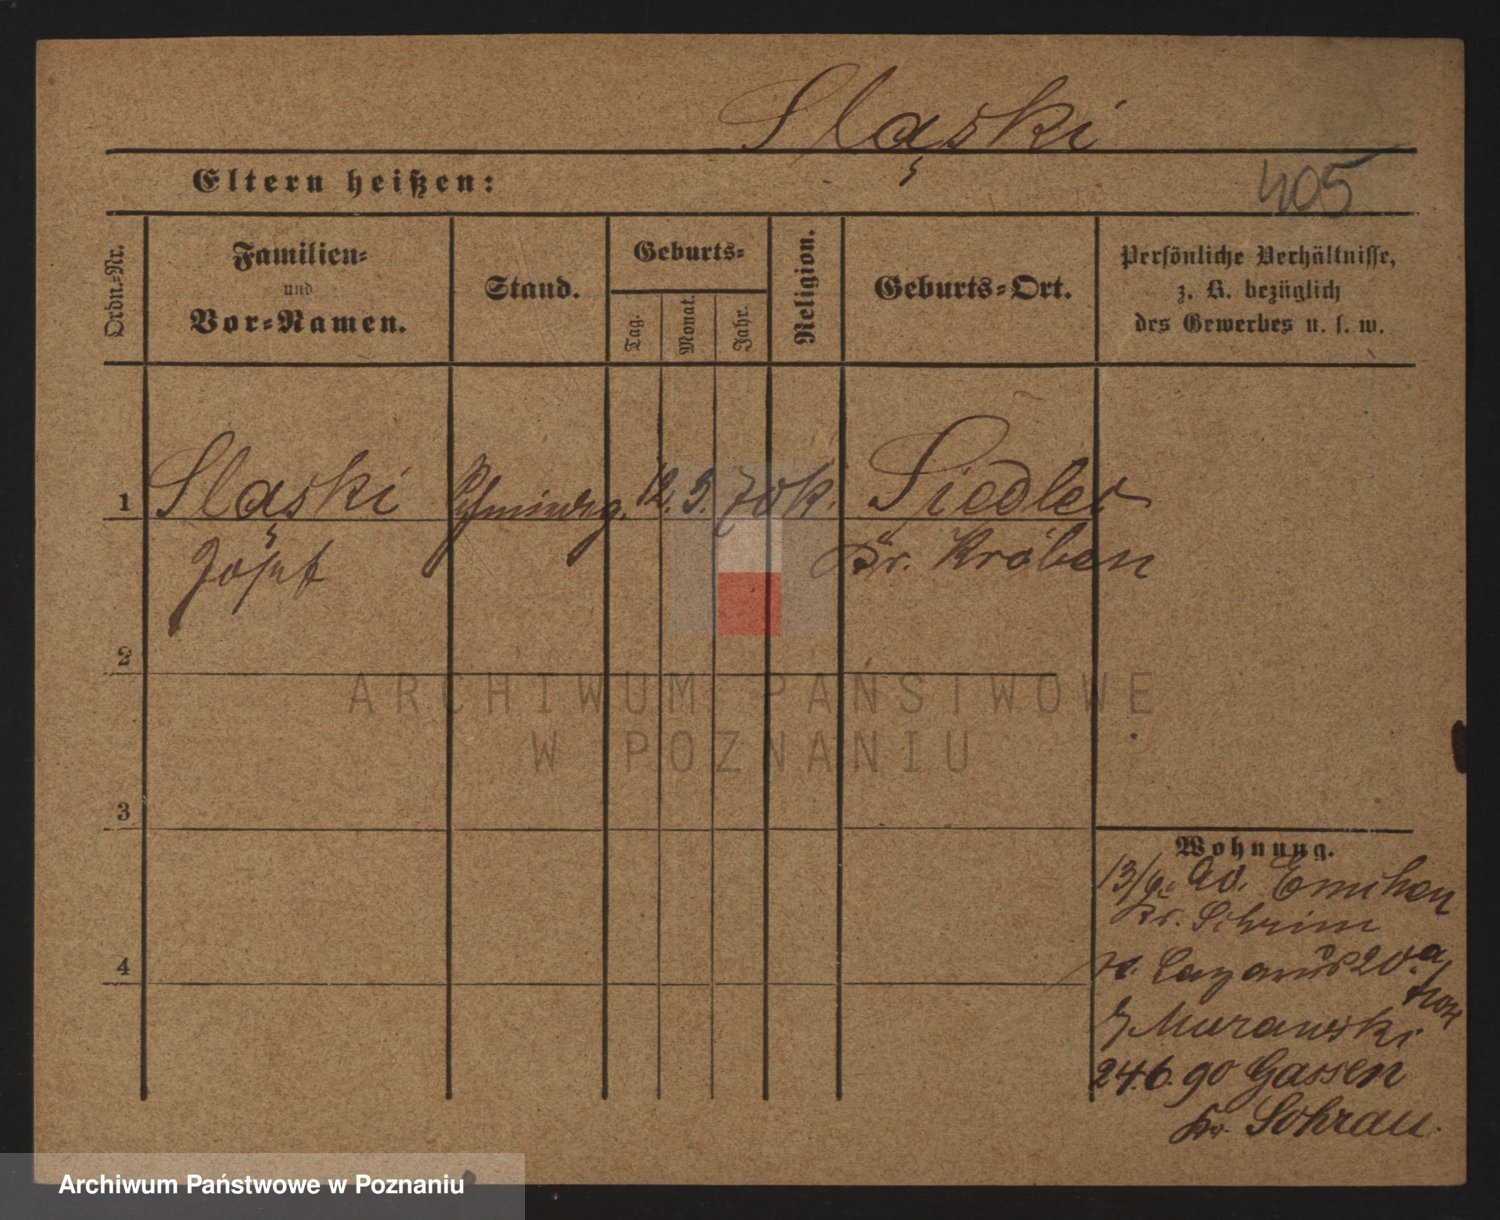 Sląski
Eltern heißen:
405
Ordn.-Nr.
Familien-
und
Vor-Namen.
Stand.
Geburts-
Tag.
Monat.
Jahr.
Religion.
Geburts-Ort.
Persönliche Verhältnisse,
z. B. bezüglich
des Gewerbes u. s. w.
1 Sląski 12. 5. 70 k. Siedlec
Josef Kr. Kröben
2
3
4
Wohnung.
13/9. 90. Emchen
Kr. Schrim
St. Lazarus 20a
b/ Murawski
24.6. 90. Gassen
Kr. Sohrau.
ARCHIWUM PAŃSTWOWE
W POZNANIU
Archiwum Państwowe w Poznaniu